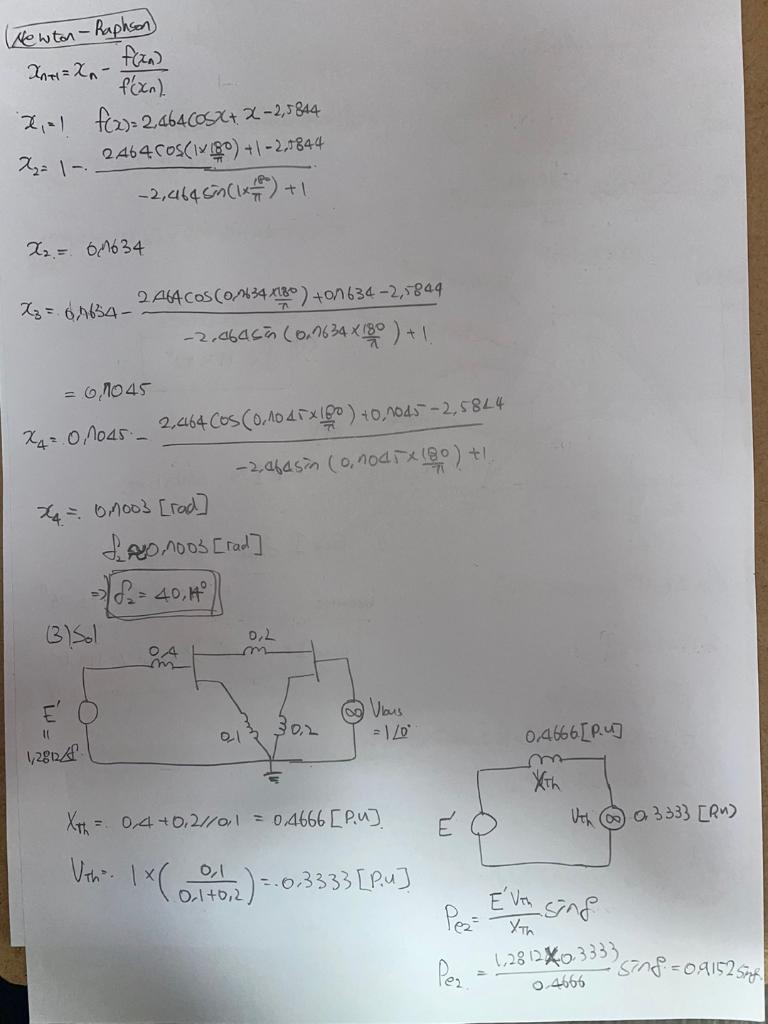 Newton-Raphson
xₙ₊₁ = xₙ - f(xₙ)/f'(xₙ)
x₁=1 f(x)=2,464cosx+x-2,5844
x₂= 1 - (2,464cos(1×180/π)+1-2,5844)/(-2,464sin(1×180/π)+1)
x₂ = 0,7634
x₃= 0,7634 - (2,464cos(0,7634×180/π)+0,7634-2,5844)/(-2,464sin(0,7634×180/π)+1)
= 0,7045
x₄= 0,7045 - (2,464cos(0,7045×180/π)+0,7045-2,5844)/(-2,464sin(0,7045×180/π)+1)
x₄ = 0,7003 [rad]
δ₂≈0,7003 [rad]
⇒ δ₂ = 40,14°
(3) Sol
0,4
0,2
E'
=
1,2812∠δ
0,1
0,2
∞
Vbus
=1∠0°
0,4666[P.u]
XTh
E'
VTh
∞
0,3333 [P.u]
XTh = 0,4+0,2//0,1 = 0,4666 [P.u]
VTh = 1×(0,1/(0,1+0,2)) = 0,3333 [P.u]
Pe2= E'VTh/XTh sinδ
Pe2 = 1,2812×0,3333/0,4666 sinδ = 0,9152sinδ